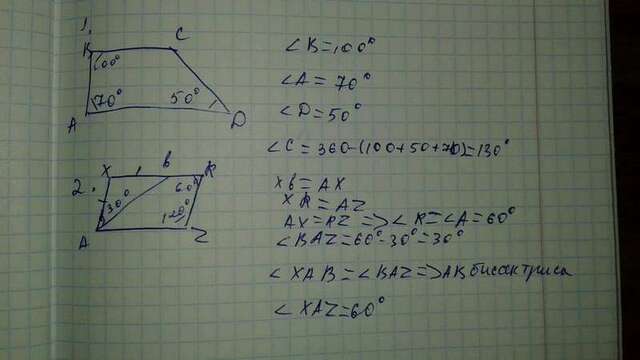 1.
K C
100°
70° 50°
A D
∠K=100°
∠A = 70°
∠D=50°
∠C = 360-(100+50+70)=130°
2.
X B R
60°
30°
120°
A Z
XB=AX
XR=AZ
AX=RZ => ∠R=∠A=60°
∠BAZ=60°-30°=30°
∠XAB=∠BAZ=>AB бисектриса
∠XAZ=60°